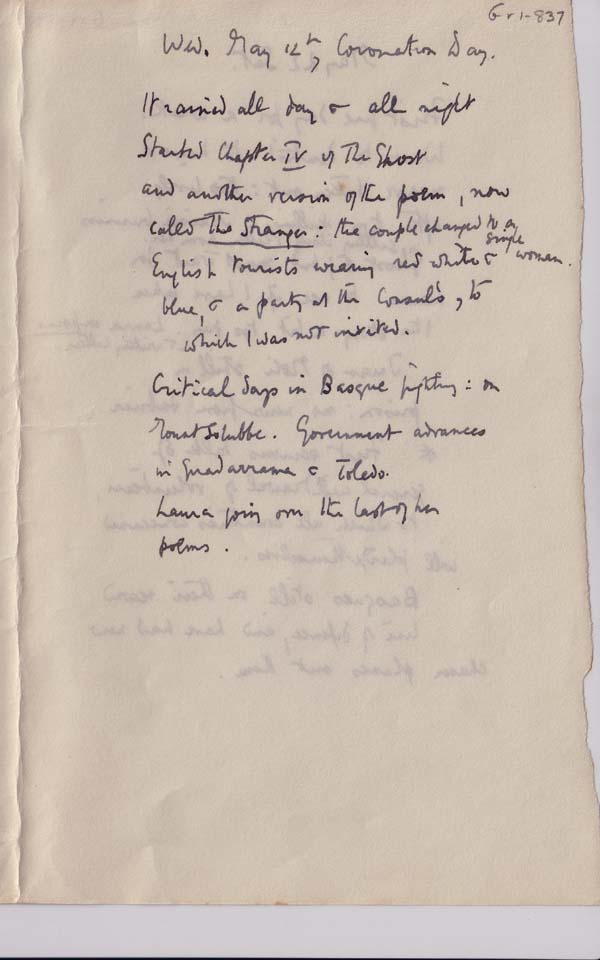 Gr1-837
Wed. May 12th, Coronation Day.
It rained all day & all night
Started Chapter IV of The Ghost
and another version of the poem, now
called The Stranger: the couple changed to a
single woman.
English tourists wearing red white &
blue, & a party at the Consul's, to
which I was not invited.
Critical days in Basque fighting: on
Mount Solubbe. Government advances
in Guadarrama & Toledo.
Laura going over the last of her
poems.